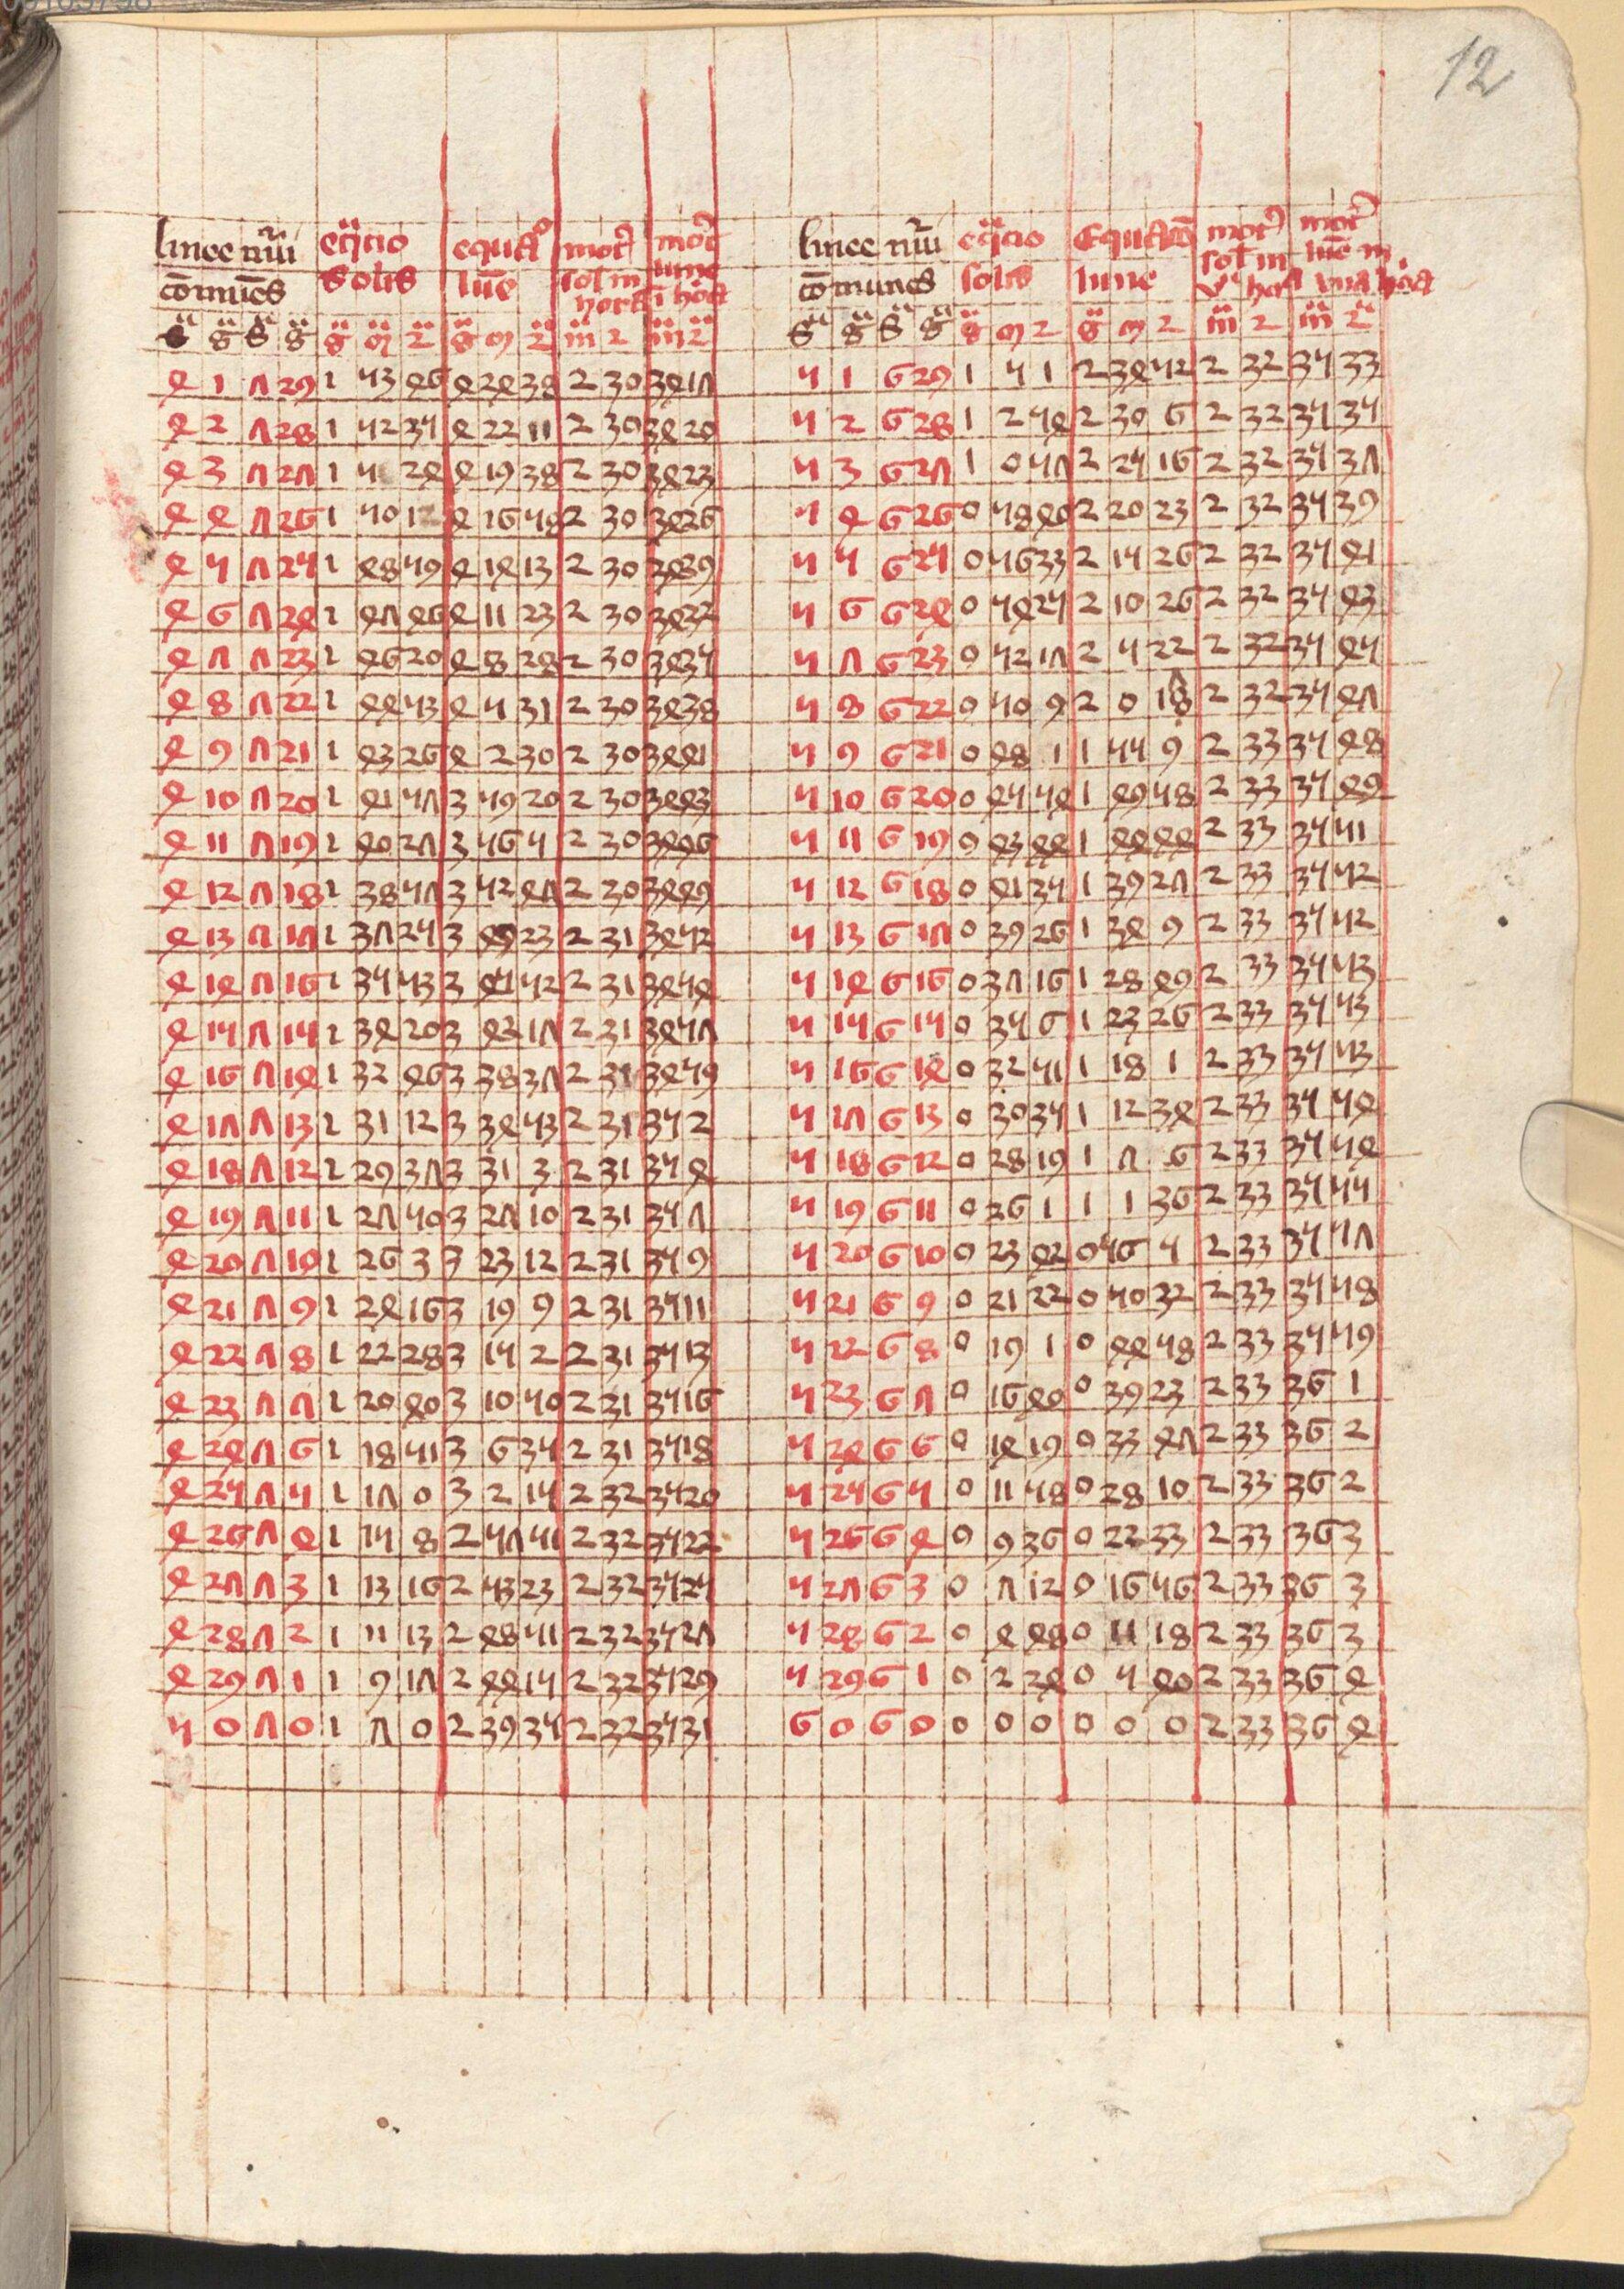 linee nũi cõmuẽs
eq̃cio Solis
equa͡o lũe
mot9 sol in hora
mot9 lune ĩ hora
s̈ g̈ s̈ g̈ g̈ m̈ 2̈ g̈ m 2̈ m̈ 2 m̈ 2̈
4 1 7 29 1 53 46 4 24 38 2 30 34 17
4 2 7 28 1 52 35 4 22 11 2 30 34 20
4 3 7 27 1 5 24 4 19 38 2 30 34 23
4 4 7 26 1 50 12 4 16 58 2 30 34 26
4 5 7 25 1 48 59 4 14 13 2 30 34 39
4 6 7 24 1 47 46 4 11 23 2 30 34 32
4 7 7 23 1 46 20 4 8 28 2 30 34 35
4 8 7 22 1 44 53 4 5 31 2 30 34 38
4 9 7 21 1 43 26 4 2 30 2 30 34 41
4 10 7 20 1 41 57 3 59 20 2 30 34 43
4 11 7 19 1 40 27 3 56 5 2 30 34 46
4 12 7 18 1 38 57 3 52 47 2 20 34 49
4 13 7 17 1 37 25 3 49 23 2 31 34 52
4 14 7 16 1 35 53 3 45 52 2 31 34 54
4 15 7 15 1 34 20 3 42 17 2 31 34 57
4 16 7 14 1 32 46 3 38 37 2 31 34 59
4 17 7 13 1 31 12 3 34 53 2 31 35 2
4 18 7 12 1 29 37 3 31 3 2 31 35 4
4 19 7 11 1 27 50 3 27 10 2 31 35 7
4 20 7 10 1 26 3 3 23 12 2 31 35 9
4 21 7 9 1 24 16 3 19 9 2 31 35 11
4 22 7 8 1 22 28 3 15 2 2 31 35 13
4 23 7 7 1 20 40 3 10 50 2 31 35 16
4 24 7 6 1 18 51 3 6 35 2 31 35 18
4 25 7 5 1 17 0 3 2 15 2 32 35 20
4 26 7 4 1 15 8 2 57 51 2 32 35 22
4 27 7 3 1 13 16 2 53 23 2 32 35 25
4 28 7 2 1 11 13 2 48 51 2 32 35 27
4 29 7 1 1 9 17 2 44 15 2 32 35 29
5 0 7 0 1 7 0 2 39 35 2 32 35 31
12
linee nũi cõmunes
eq̃cio solis
Equacõ lune
mot9 sol in hora
mot9 lũe in una hora
s̈ g̈ s̈ g̈ g̈ m 2 g̈ m 2 m̈ 2 m̈ 2̈
5 1 6 29 1 5 1 2 34 52 2 32 35 33
5 2 6 28 1 2 54 2 30 6 2 32 35 35
5 3 6 27 1 0 57 2 25 16 2 32 35 37
5 4 6 26 0 58 40 2 20 23 2 32 35 39
5 5 6 25 0 56 33 2 15 26 2 32 35 41
5 6 6 24 0 54 25 2 10 26 2 32 35 43
5 7 6 23 0 52 17 2 5 22 2 32 35 45
5 8 6 22 0 50 9 2 0 18 2 32 35 47
5 9 6 21 0 48 1 1 55 9 2 33 35 48
5 10 6 20 0 45 54 1 49 58 2 33 35 49
5 11 6 19 0 43 44 1 44 44 2 33 35 51
5 12 6 18 0 41 35 1 39 27 2 33 35 52
5 13 6 17 0 39 26 1 34 9 2 33 35 52
5 14 6 16 0 37 16 1 28 49 2 33 35 53
5 15 6 15 0 35 6 1 23 26 2 33 35 53
5 16 6 14 0 32 51 1 18 1 2 33 35 53
5 17 6 13 0 30 35 1 12 34 2 33 35 54
5 18 6 12 0 28 19 1 7 6 2 33 35 54
5 19 6 11 0 26 1 1 1 36 2 33 35 55
5 20 6 10 0 23 42 0 56 5 2 33 35 57
5 21 6 9 0 21 22 0 50 32 2 33 35 58
5 22 6 8 0 19 1 0 44 58 2 33 35 59
5 23 6 7 0 16 40 0 39 23 2 33 36 1
5 24 6 6 0 14 19 0 33 47 2 33 36 2
5 25 6 5 0 11 58 0 28 10 2 33 36 2
5 26 6 4 0 9 36 0 22 33 2 33 36 3
5 27 6 3 0 7 12 0 16 56 2 33 36 3
5 28 6 2 0 4 48 0 11 18 2 33 36 3
5 29 6 1 0 2 24 0 5 40 2 33 36 4
6 0 6 0 0 0 0 0 0 0 2 33 36 4